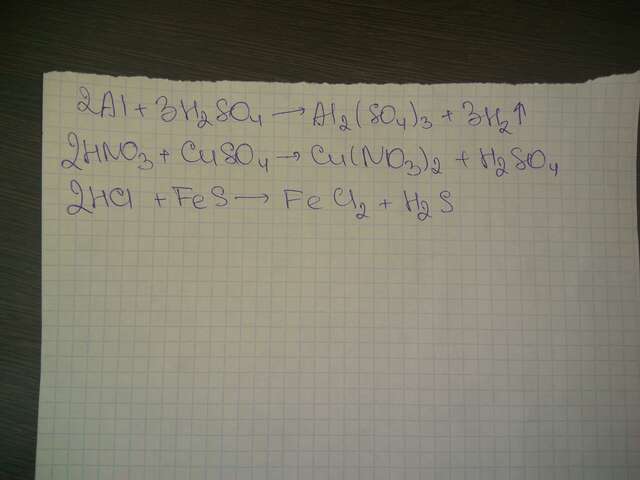 2Al + 3H₂SO₄ → Al₂(SO₄)₃ + 3H₂↑
2HNO₃ + CuSO₄ → Cu(NO₃)₂ + H₂SO₄
2HCl + FeS → FeCl₂ + H₂S